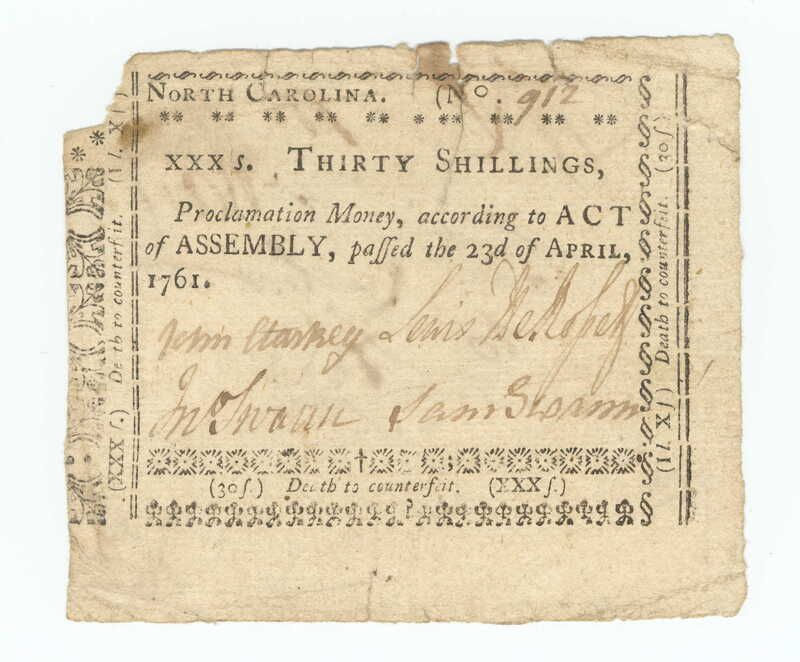 NORTH CAROLINA. (No. 912
XXX s. THIRTY SHILLINGS,
Proclamation Money, according to ACT
of ASSEMBLY, paſſed the 23d of APRIL,
1761.
John Starkey Lewis DeRosset
Jno Swann Sam Swann
(30ſ.) Death to counterfeit. (XXXſ.)
(XXX ſ.) De th to counterfeit. (1 l. Xſ)
(1 l. Xſ) Death to counterfeit. (30ſ)